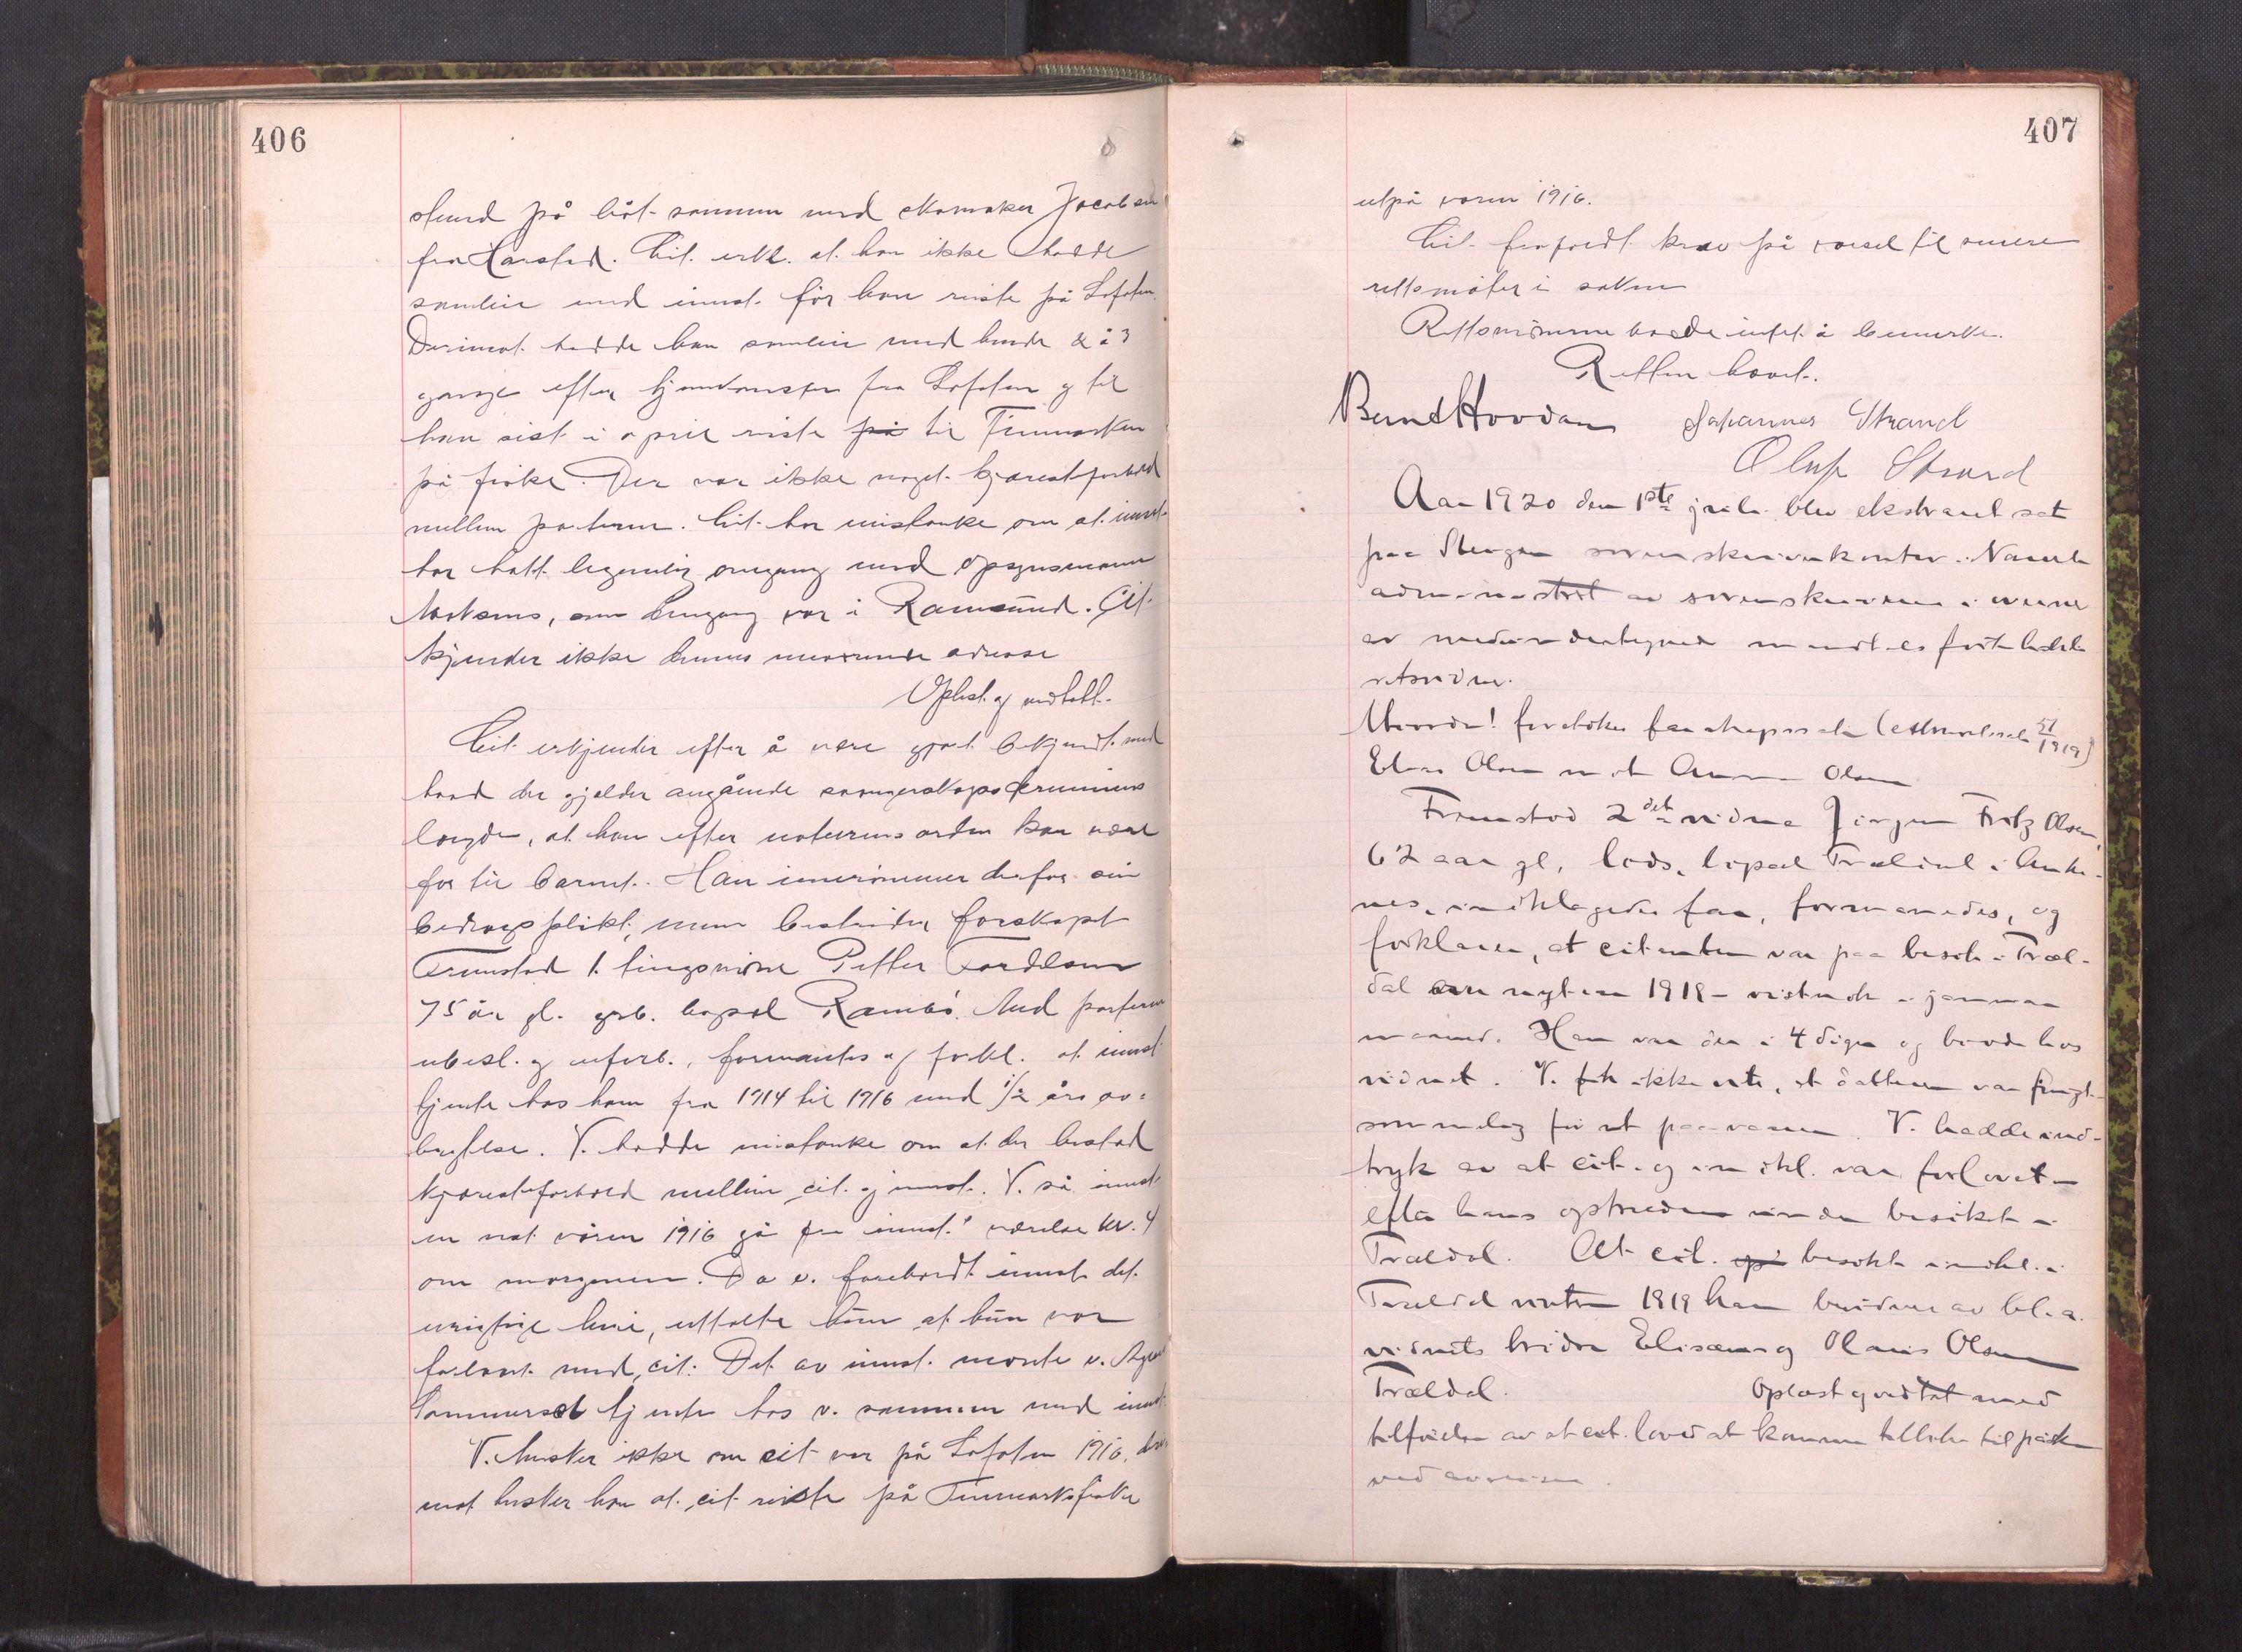 406
sund på båt sammen med skomaker Jacobsen
fra Harstad. Cit. erkl. at han ikke hadde
samleie med innst. før han reiste på Lofoten.
Derimot hadde han samleie med hende 2 à 3
ganger efter hjemkomsten fra Lofoten og til
han sist i april reiste på til Finmarken
på fiske. Der var ikke noget kjæresteforhold
mellem partene. Cit. har mistanke om at innst.
har hatt legemlig omgang med opsynsmann
som dengang var i Ramsund. Cit.
kjender ikke dennes nuværende adresse
Oplest og vedtatt.
Cit. erkjender efter å være gjort bekjendt med
hvad der gjelder angående svangerskapsperiodens
lengde, at han efter naturens orden kan være
far til barnet. Han innrømmer derfor sin
bidragsplikt, men bestrider farskapet
Fremstod 1. tingsvidne Petter
75 år gl. grb. bopæl Rambø. Med partene
ubesl. og uforb., formantes og forkl. at innst.
tjente hos ham fra 1914 til 1916 med 1/2 års av-
brytelse. V. hadde mistanke om at der bestod
kjæresteforhold mellem cit. og innst. V. så innst.
en nat våren 1916 gå fra innst.s værelse kl. 4
om morgenen. Da v. foreholdt innst. det
urigtige heri, uttalte hun at hun var
forlovet med cit. Det av innst. nevnte v.
Sommerset tjente hos v. sammen med innst.
V. husker ikke om cit var på Lofoten 1916, der-
mot husker han at cit reiste på Finmarksfiske
407
utpå våren 1916.
Cit. frafaldt krav på varsel til senere
rettsmøter i saken
Rettsvidnene hadde intet å bemerke.
Retten hævet.
Bernt Hovdan Johannes Strand
Oluf Strand
Aar 1920 den 1ste juli blev ekstraret sat
paa sorenskriverkontor i Narvik
administrert av sorenskriveren i overvær
av medundertegnede mundtlig tilkaldte
retsvidner.
Hvorda! foretokes farskapssak (ekstraretssak 51/1919)
Olsen mot Anna Olsen
Fremstod 2det vidne Jørgen Fritz Olsen,
62 aar gl, lods, bopæl Trældal i Anke-
nes, indklagedes far, formanedes, og
forklarer, at citanten var paa besøk i Træl-
dal omr nytaar 1919 – vistnok i januar
maaned. Han var der i 4 dage og bodde hos
vidnet. V. fik ikke vite, at datteren var frugt-
sommelig før ut paa vaaren. V. hadde ind-
tryk av at cit. og indkl. var forlovet –
efter hans optræden under besøket i
Trældal. At cit. og besøkte indkl. i
Træeldal vinteren 1919 kan bevidnes av bl.a.
vidnets brødre Eliseus og Olaus Olsen
Træeldal. Oplæst og vedtat med
tilføielse av at cit. lovet at komme tilbake til paaske
ved avreisen.